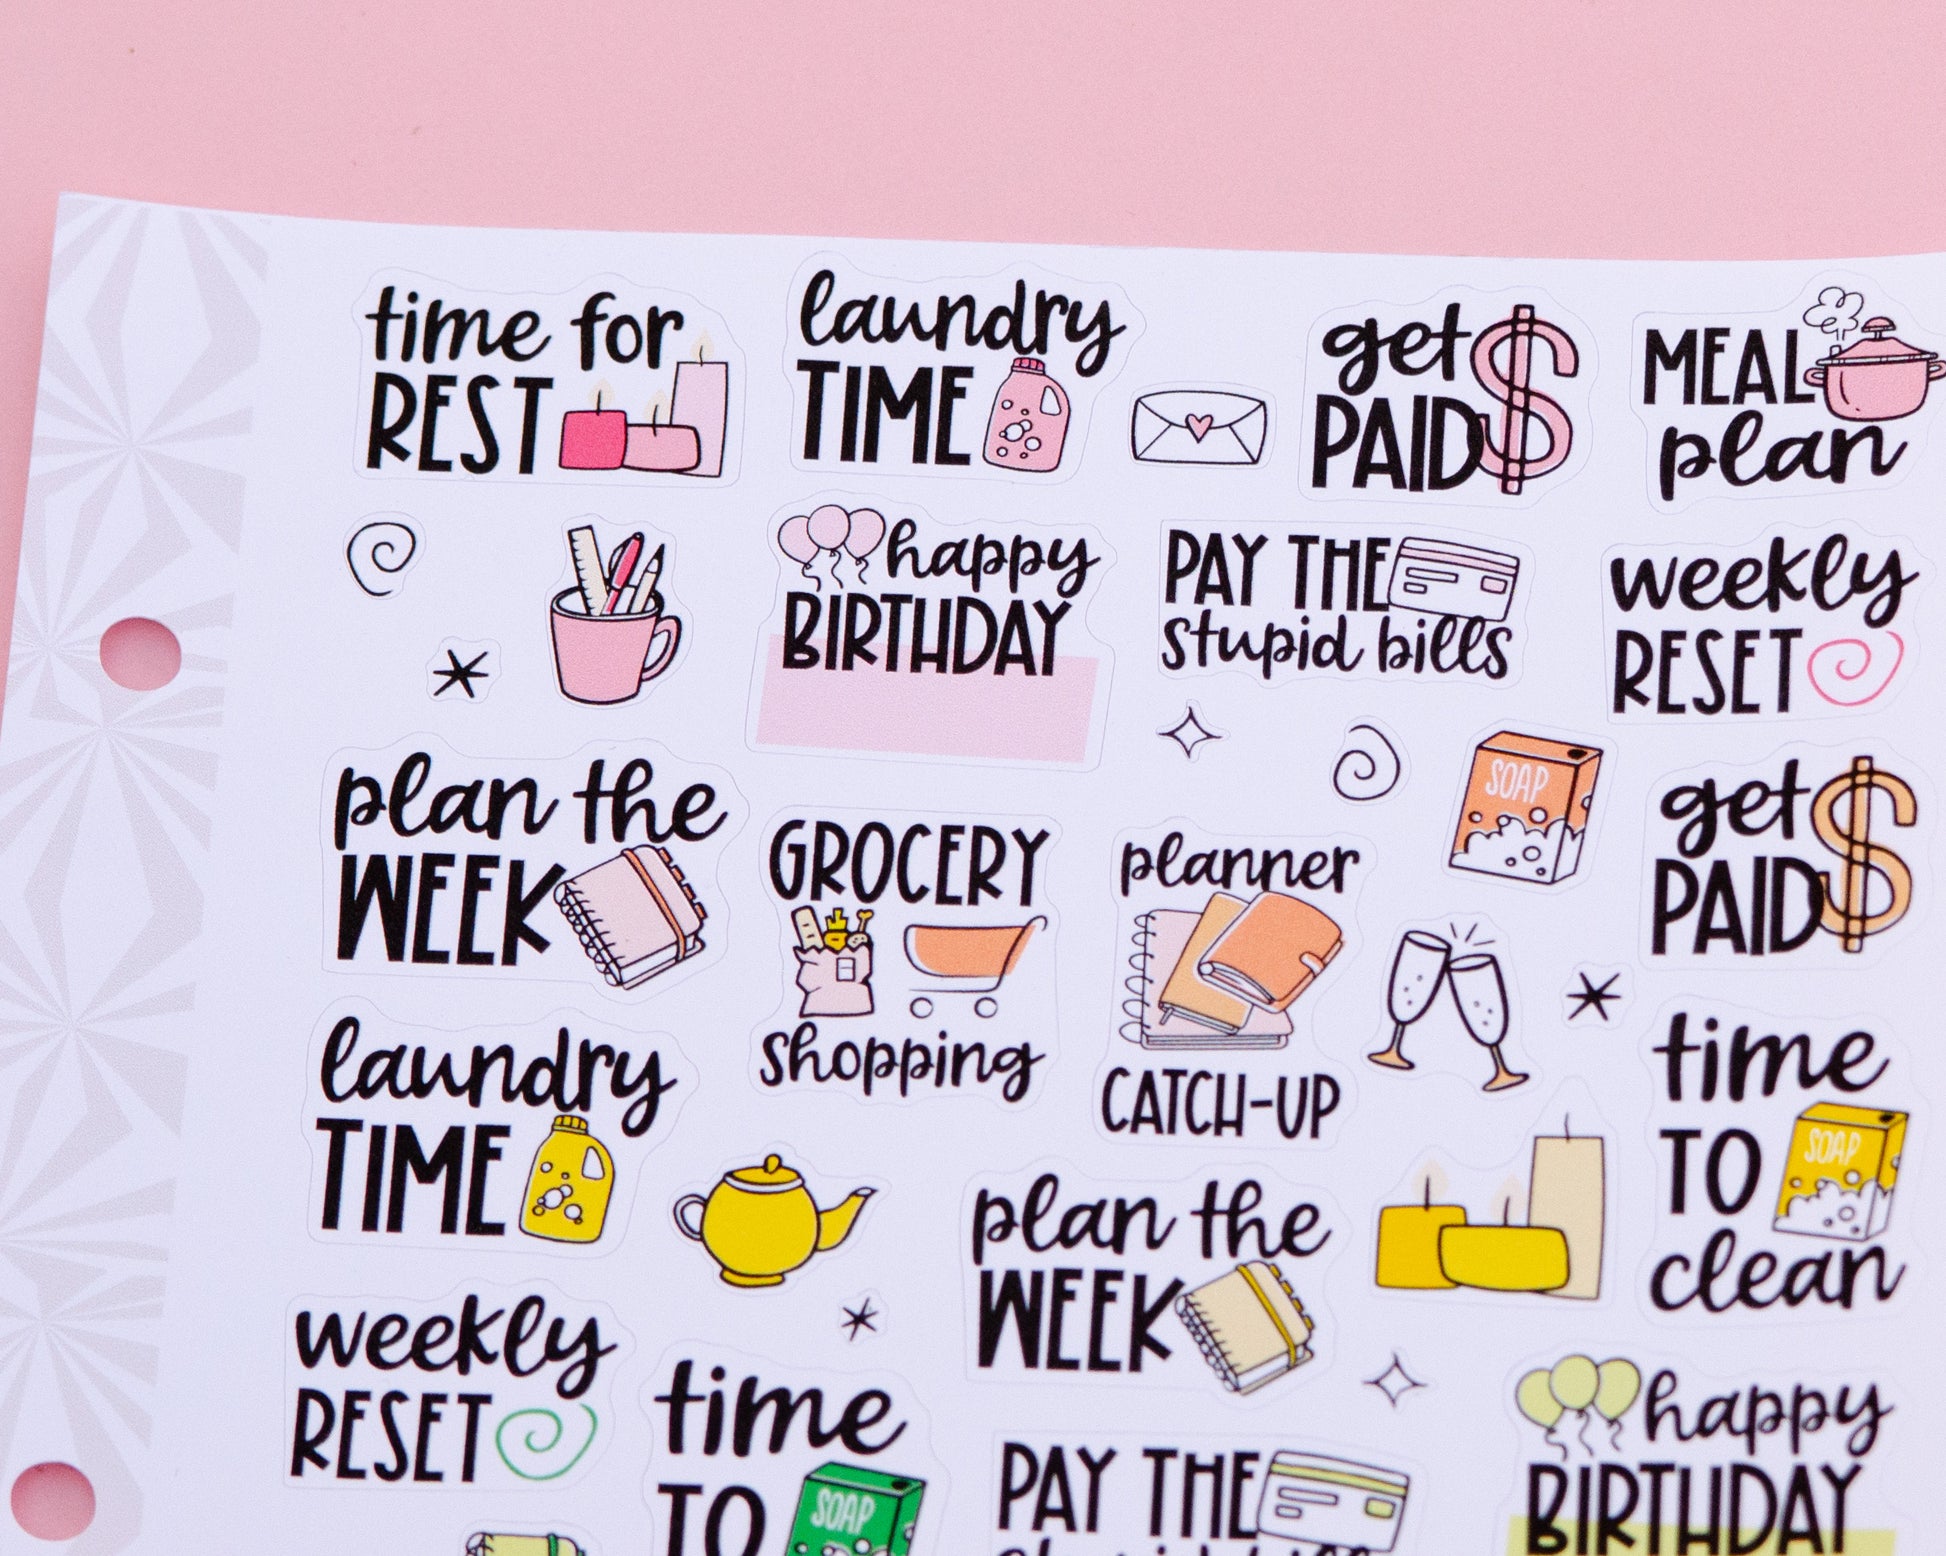 time for
REST
laundry
TIME
get
PAID
MEAL
plan
happy
BIRTHDAY
PAY THE
stupid bills
weekly
RESET
plan the
WEEK
GROCERY
shopping
planner
CATCH-UP
SOAP
get
PAID
laundry
TIME
plan the
WEEK
time
TO
clean
SOAP
weekly
RESET
time
TO
SOAP
PAY THE
stupid bills
happy
BIRTHDAY